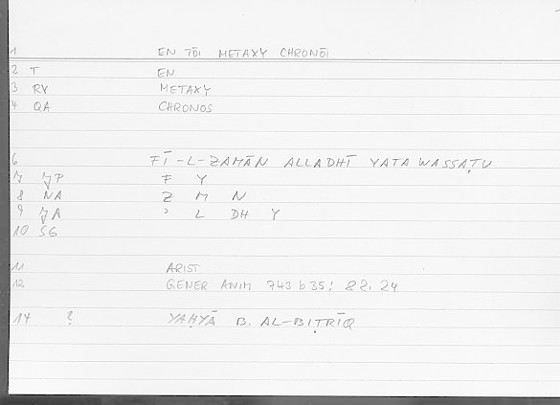 1 EN TŌI METAXY CHRONŌI
2 T EN
3 RY METAXY
4 QA CHRONOS
6 FĪ-L-ZAMĀN ALLADHĪ YATAWASSAṬU
7 F Y
8 NA Z M N
9 ʾ L DH Y
10 SG
11 ARIST
12 GENER ANIM 743 b 35; 82, 24
14 ? YAḤYĀ B. AL-BIṬRĪQ